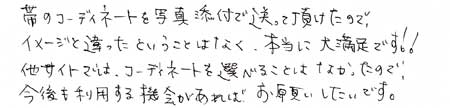 帯のコーディネートを写真添付で送って頂けたので、
イメージと違ったということはなく、本当に大満足です!!
他サイトでは、コーディネートを選べることはなかったので、
今後も利用する機会があれば お願いしたいです。